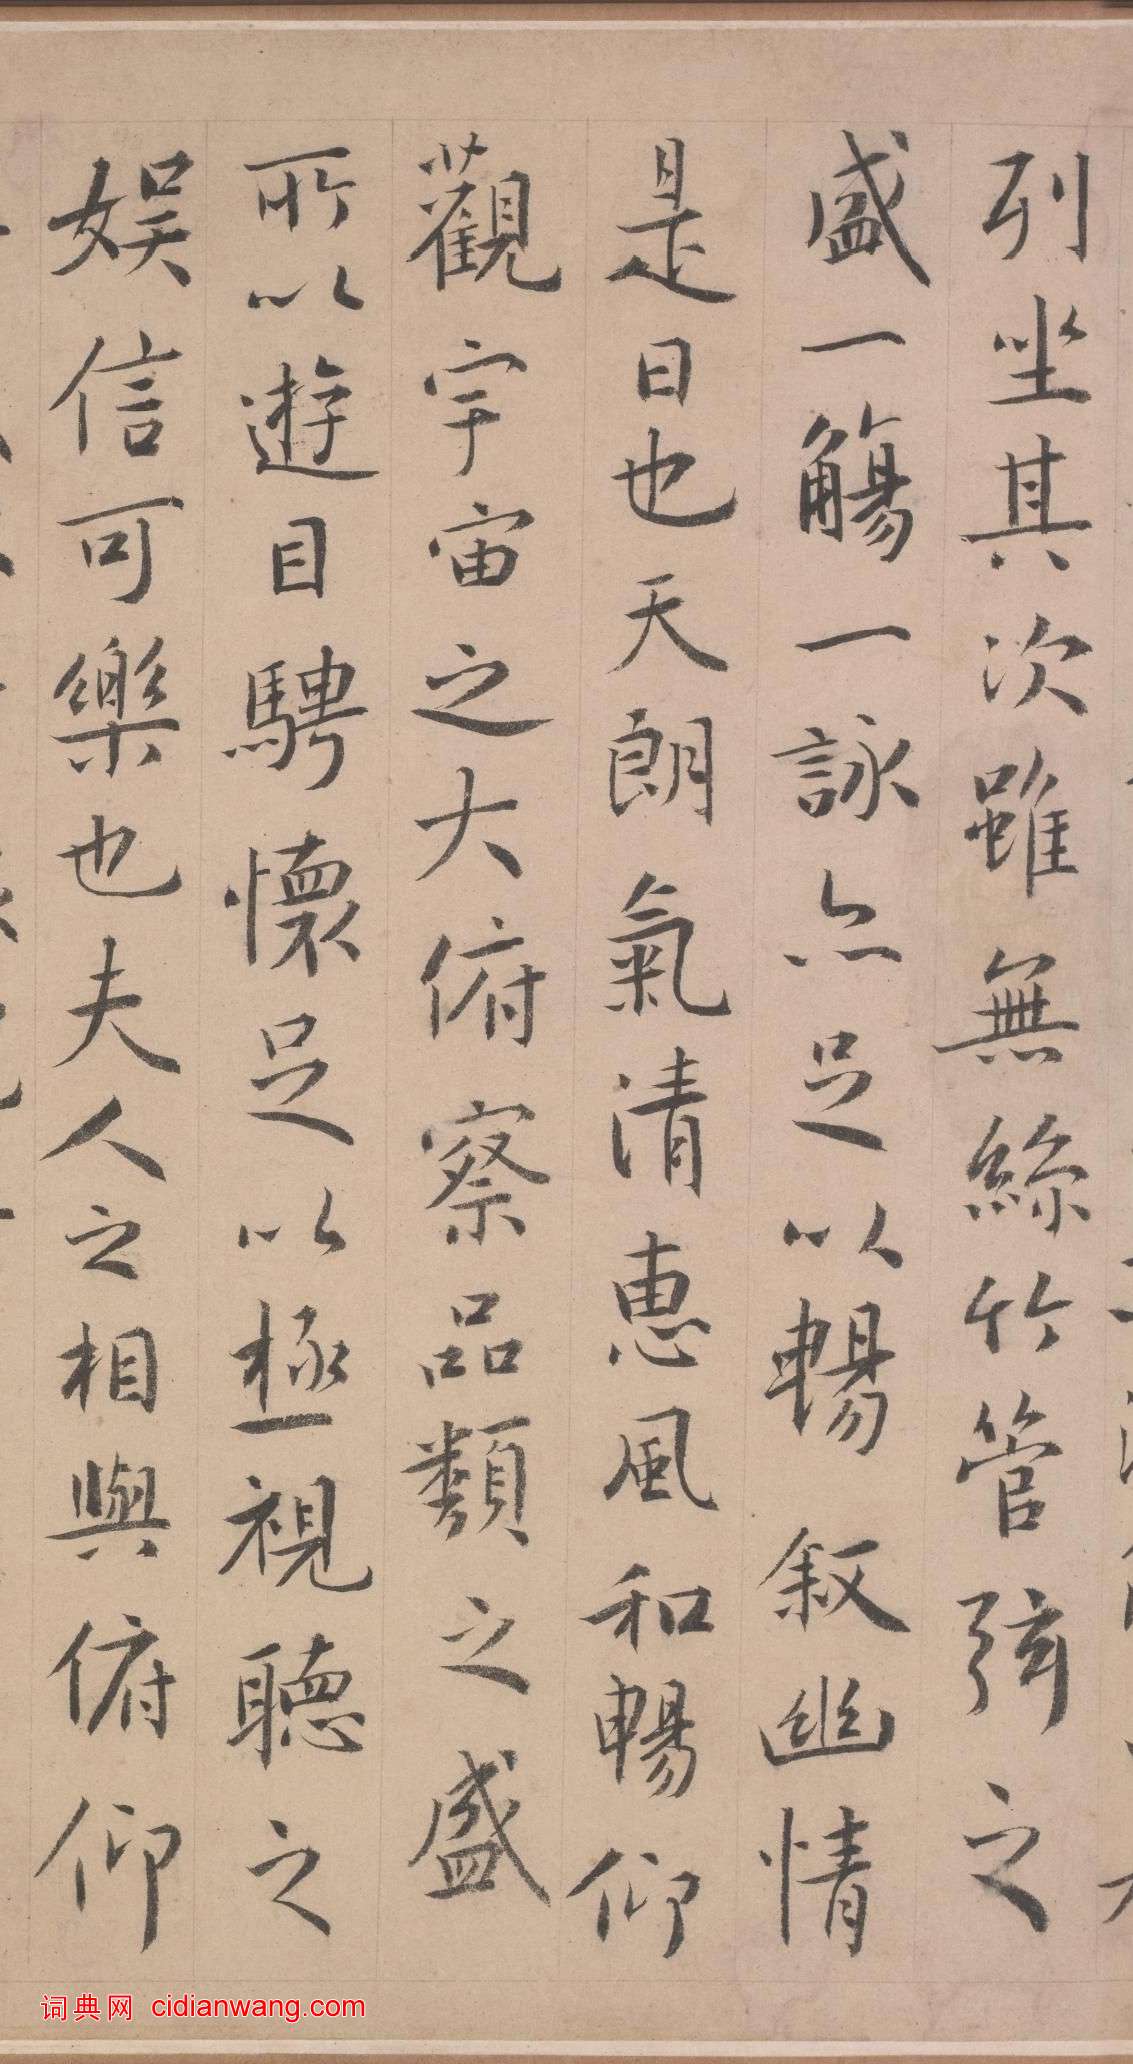 列坐其次雖無絲竹管弦之
盛一觴一詠亦足以暢叙幽情
是日也天朗氣清惠風和暢仰
觀宇宙之大俯察品類之盛
所以遊目騁懷足以極視聽之
娛信可樂也夫人之相與俯仰
词典网 cidianwang.com